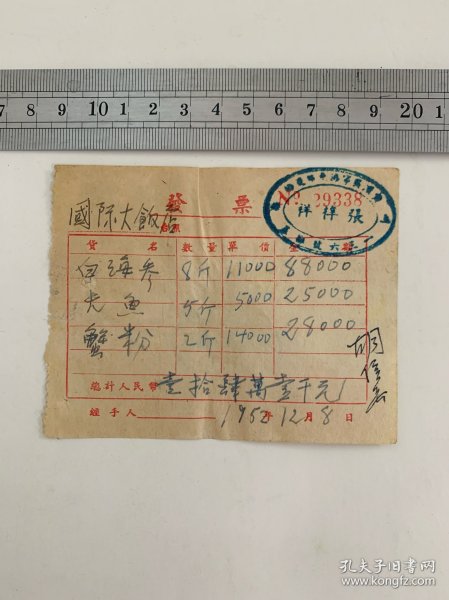 7 8 9 10 1 2 3 4 5 6 7 8 9 20 1
發 票
No 29338
張祥祥
國际大飯店
貨 名 數量 單價 金 額
白海參 8斤 11000 88000
尤魚 5斤 5000 25000
蟹粉 2斤 14000 28000
總計人民幣壹拾肆萬壹千元
經手人 1952年12月8日
孔夫子旧书网
www.kongfz.com